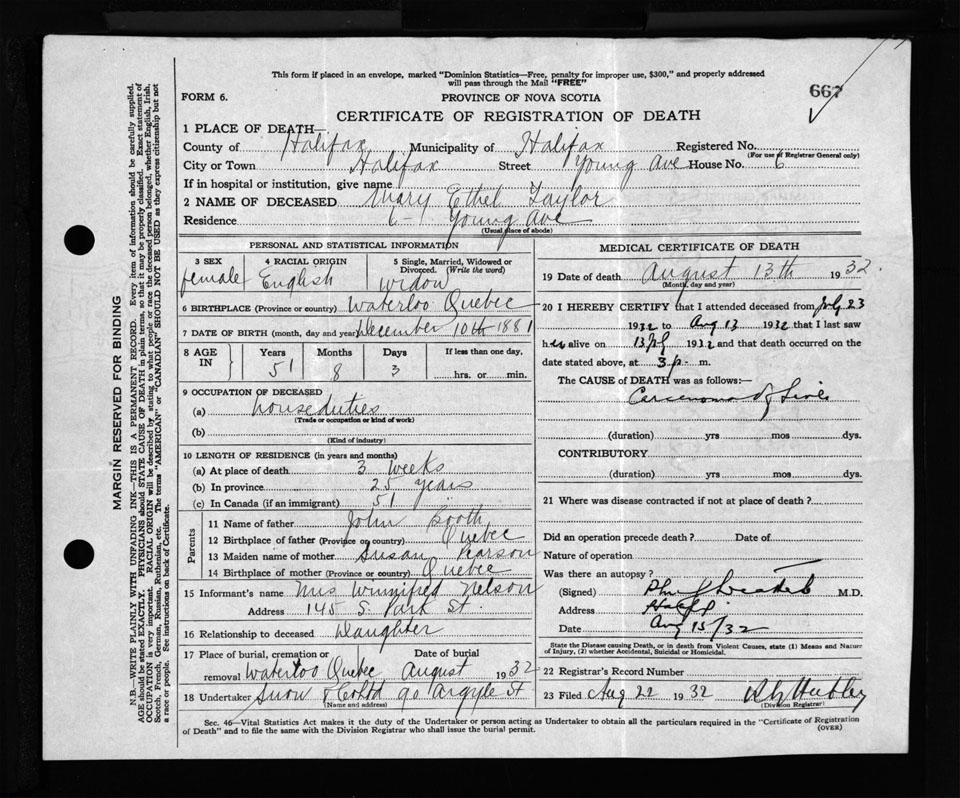 This form if placed in an envelope, marked "Dominion Statistics—Free, penalty for improper use, $300," and properly addressed
will pass through the Mail "FREE"
667
FORM 6.
PROVINCE OF NOVA SCOTIA
CERTIFICATE OF REGISTRATION OF DEATH
1 PLACE OF DEATH—
County of Halifax Municipality of Halifax Registered No.
(For use of Registrar General only)
City or Town Halifax Street Young Ave House No. 6
If in hospital or institution, give name
2 NAME OF DECEASED Mary Ethel Taylor
Residence 6 – Young Ave
(Usual place of abode)
PERSONAL AND STATISTICAL INFORMATION
3 SEX female
4 RACIAL ORIGIN English
5 Single, Married, Widowed or Divorced. (Write the word) Widow
6 BIRTHPLACE (Province or country) Waterloo Quebec
7 DATE OF BIRTH (month, day and year) December 10th 1881
8 AGE IN Years 51 Months 8 Days 3 If less than one day, hrs. or min.
9 OCCUPATION OF DECEASED
(a) house duties
(Trade or occupation or kind of work)
(b)
(Kind of industry)
10 LENGTH OF RESIDENCE (in years and months)
(a) At place of death 3 weeks
(b) In province 25 years
(c) In Canada (if an immigrant) 51 "
Parents
11 Name of father John Booth
12 Birthplace of father (Province or country) Quebec
13 Maiden name of mother Susan Pearson
14 Birthplace of mother (Province or country) Quebec
15 Informant's name Mrs Winnifred Nelson
Address 145 S. Park St.
16 Relationship to deceased Daughter
17 Place of burial, cremation or removal Waterloo Quebec Date of burial August 1932
18 Undertaker Snow & Co Ltd 90 Argyle St
(Name and address)
MEDICAL CERTIFICATE OF DEATH
19 Date of death August 13th 1932.
(Month, day and year)
20 I HEREBY CERTIFY that I attended deceased from July 23
1932 to Aug 13 1932 that I last saw
her alive on 13 1932 and that death occurred on the
date stated above, at 3 p. m.
The CAUSE OF DEATH was as follows:—
Carcenoma of Liver
(duration) yrs mos dys.
CONTRIBUTORY
(duration) yrs mos dys.
21 Where was disease contracted if not at place of death?
Did an operation precede death? Date of
Nature of operation
Was there an autopsy?
(Signed) M.D.
Address Halifax
Date Aug 15/32
State the Disease causing Death, or in death from Violent Causes, state (1) Means and Nature
of Injury, (2) whether Accidental, Suicidal or Homicidal.
22 Registrar's Record Number
23 Filed Aug 22 1932
(Division Registrar)
Sec. 46—Vital Statistics Act makes it the duty of the Undertaker or person acting as Undertaker to obtain all the particulars required in the "Certificate of Registration
of Death" and to file the same with the Division Registrar who shall issue the burial permit.
(OVER)
MARGIN RESERVED FOR BINDING
N.B.—WRITE PLAINLY WITH UNFADING INK—THIS IS A PERMANENT RECORD. Every item of information should be carefully supplied.
AGE should be stated EXACTLY. PHYSICIANS should STATE CAUSE OF DEATH in plain terms, so that it may be properly classified. Exact statement of
OCCUPATION is very important. RACIAL ORIGIN will be described by stating to what people or race the deceased person belonged, whether English, Irish,
Scotch, French, German, Russian, Ruthenian, etc. The terms "AMERICAN" or "CANADIAN" SHOULD NOT BE USED as they express citizenship but not
a race or people. See instructions on back of Certificate.